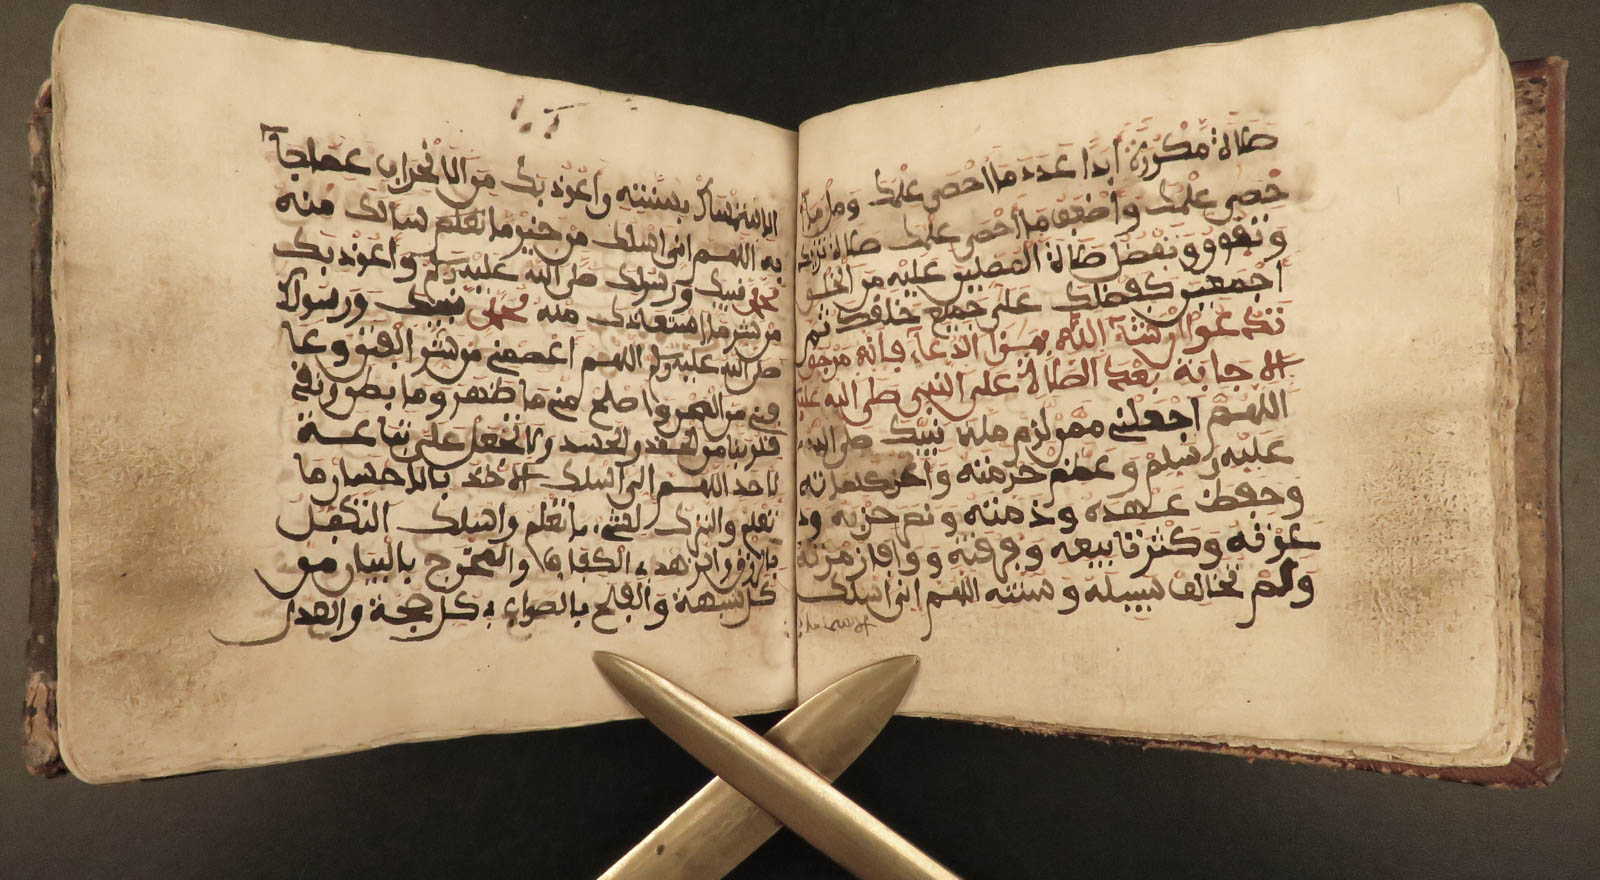 صلاة مكررة أبدا عدد ما أحصى علمك وملء ما
أحصى علمك وأضعاف ما أحصى علمك صلاة تزيد
وتفوق وتفضل صلاة المصلين عليه من الخلق
أجمعين كفضلك على جميع خلقك ثم
تدعوا إن شاء الله بهذا الدعاء فإنه مرجو
الإجابة بعد الصلاة على النبي صلى الله عليه
اللهم اجعلني ممن لزم ملة نبيك صلى الله
عليه وسلم وعظم حرمته وأعز كلمته
وحفظ عهده وذمته ونصر حزبه ود
عوته وكثر تابعيه وفرقته ووافا زمرته
ولم يخالف سبيله وسنته اللهم إني أسألك
الاستمساك
بسنته وأعوذ بك من الانحراف عما جاء
به اللهم إني أسألك من خير ما تعلم سألك منه
محمد نبيك ورسولك صلى الله عليه وسلم وأعوذ بك
من شر ما استعاذك منه محمد نبيك ورسولك
صلى الله عليه وسلم اللهم اعصمني من شر الفتن وعا
فني من المحن وأصلح مني ما ظهر وما بطن ونق
قلبي من الحقد والحسد ولا تجعل علي تباعة
لأحد اللهم إني أسألك الأخذ بأحسن ما
تعلم والترك لسيئ ما تعلم وأسألك التكفل
بالرزق والزهد في الكفاف والمخرج بالبيان من
كل شبهة والفلج بالصواب في كل حجة والعدل